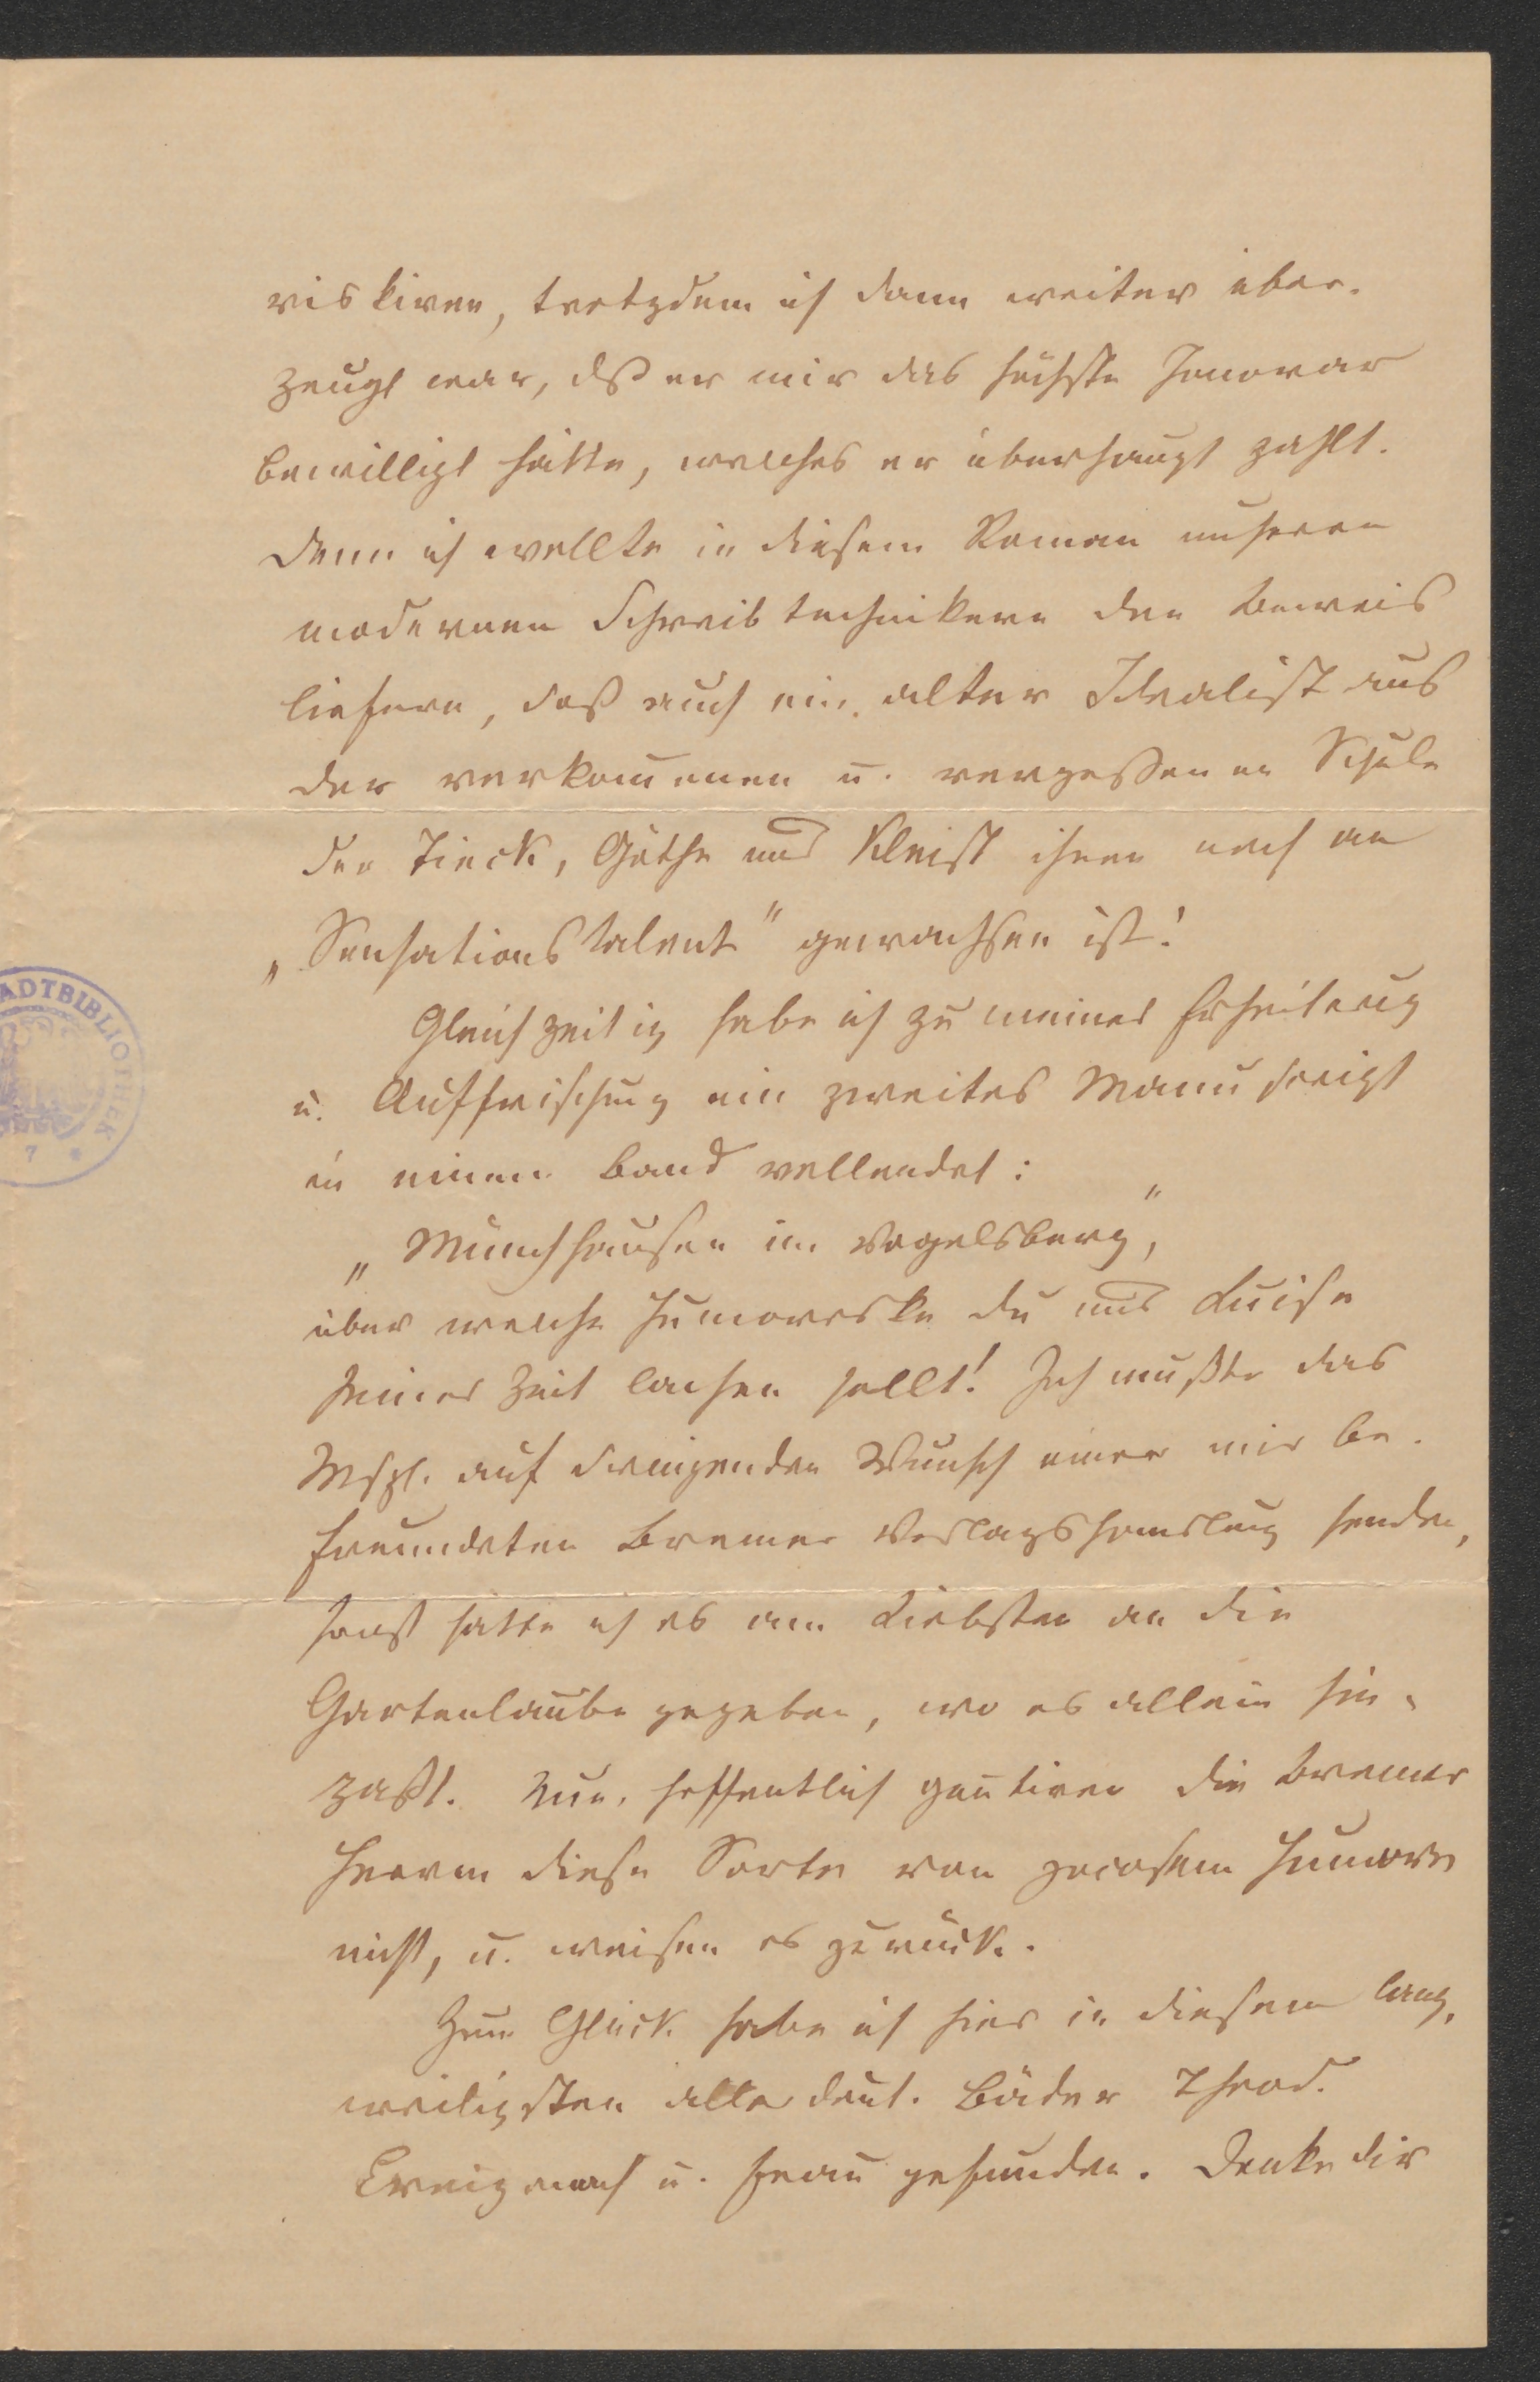 riskiren, trotzdem ich dann weiter über-
zeugt war, dß er mir das höchste Honorar
bewilligt hätte, welches er überhaupt zahlt.
Denn ich wollte in diesem Roman unseren
modernen Schreibtechnikern den Beweis
liefern, daß auch ein alter Idealist aus
der verkom̅enen u. vergessenen Schule
der Tieck, Göthe und Kleist ihnen noch an
„Sensationstalent" gewachsen ist!
Gleichzeitig habe ich zu meiner Erheiterung
u. Auffrischung ein zweites Manuscript
in einem Band vollendet:
„Münchhausen im Vogelsberg",
über welche Humoreske du und Luise
seiner Zeit lachen sollt! Ich mußte das
Mspt. auf dringenden Wunsch einer mir be-
freundeten Bremer Verlagshandlung senden,
sonst hätte ich es am Liebsten an die
Gartenlaube gegeben, wo es allein hin-
paßt. Nun, hoffentlich goutiren die Bremer
Herren diese Sorte von jocosem Humore
nicht, u. weisen es zurück.
Zum Glück habe ich hier in diesem lang-
weiligsten aller deut. Bäder Theod.
Creizenach u. Frau gefunden. Denke dir
STADTBIBLIOTHEK